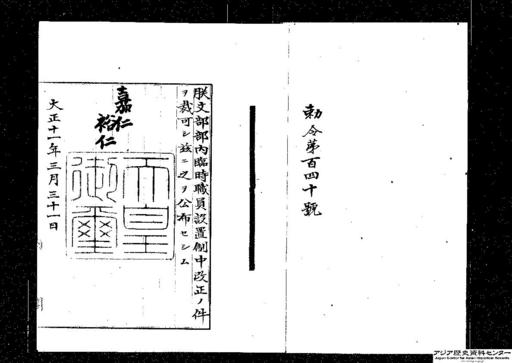 勅令第百四十號
朕文部部內臨時職員設置制中改正ノ件
ヲ裁可シ茲ニ之ヲ公布セシム
嘉仁
裕仁
天皇
御璽
大正十一年三月三十一日
アジア歴史資料センター
Japan Center for Asian Historical Records